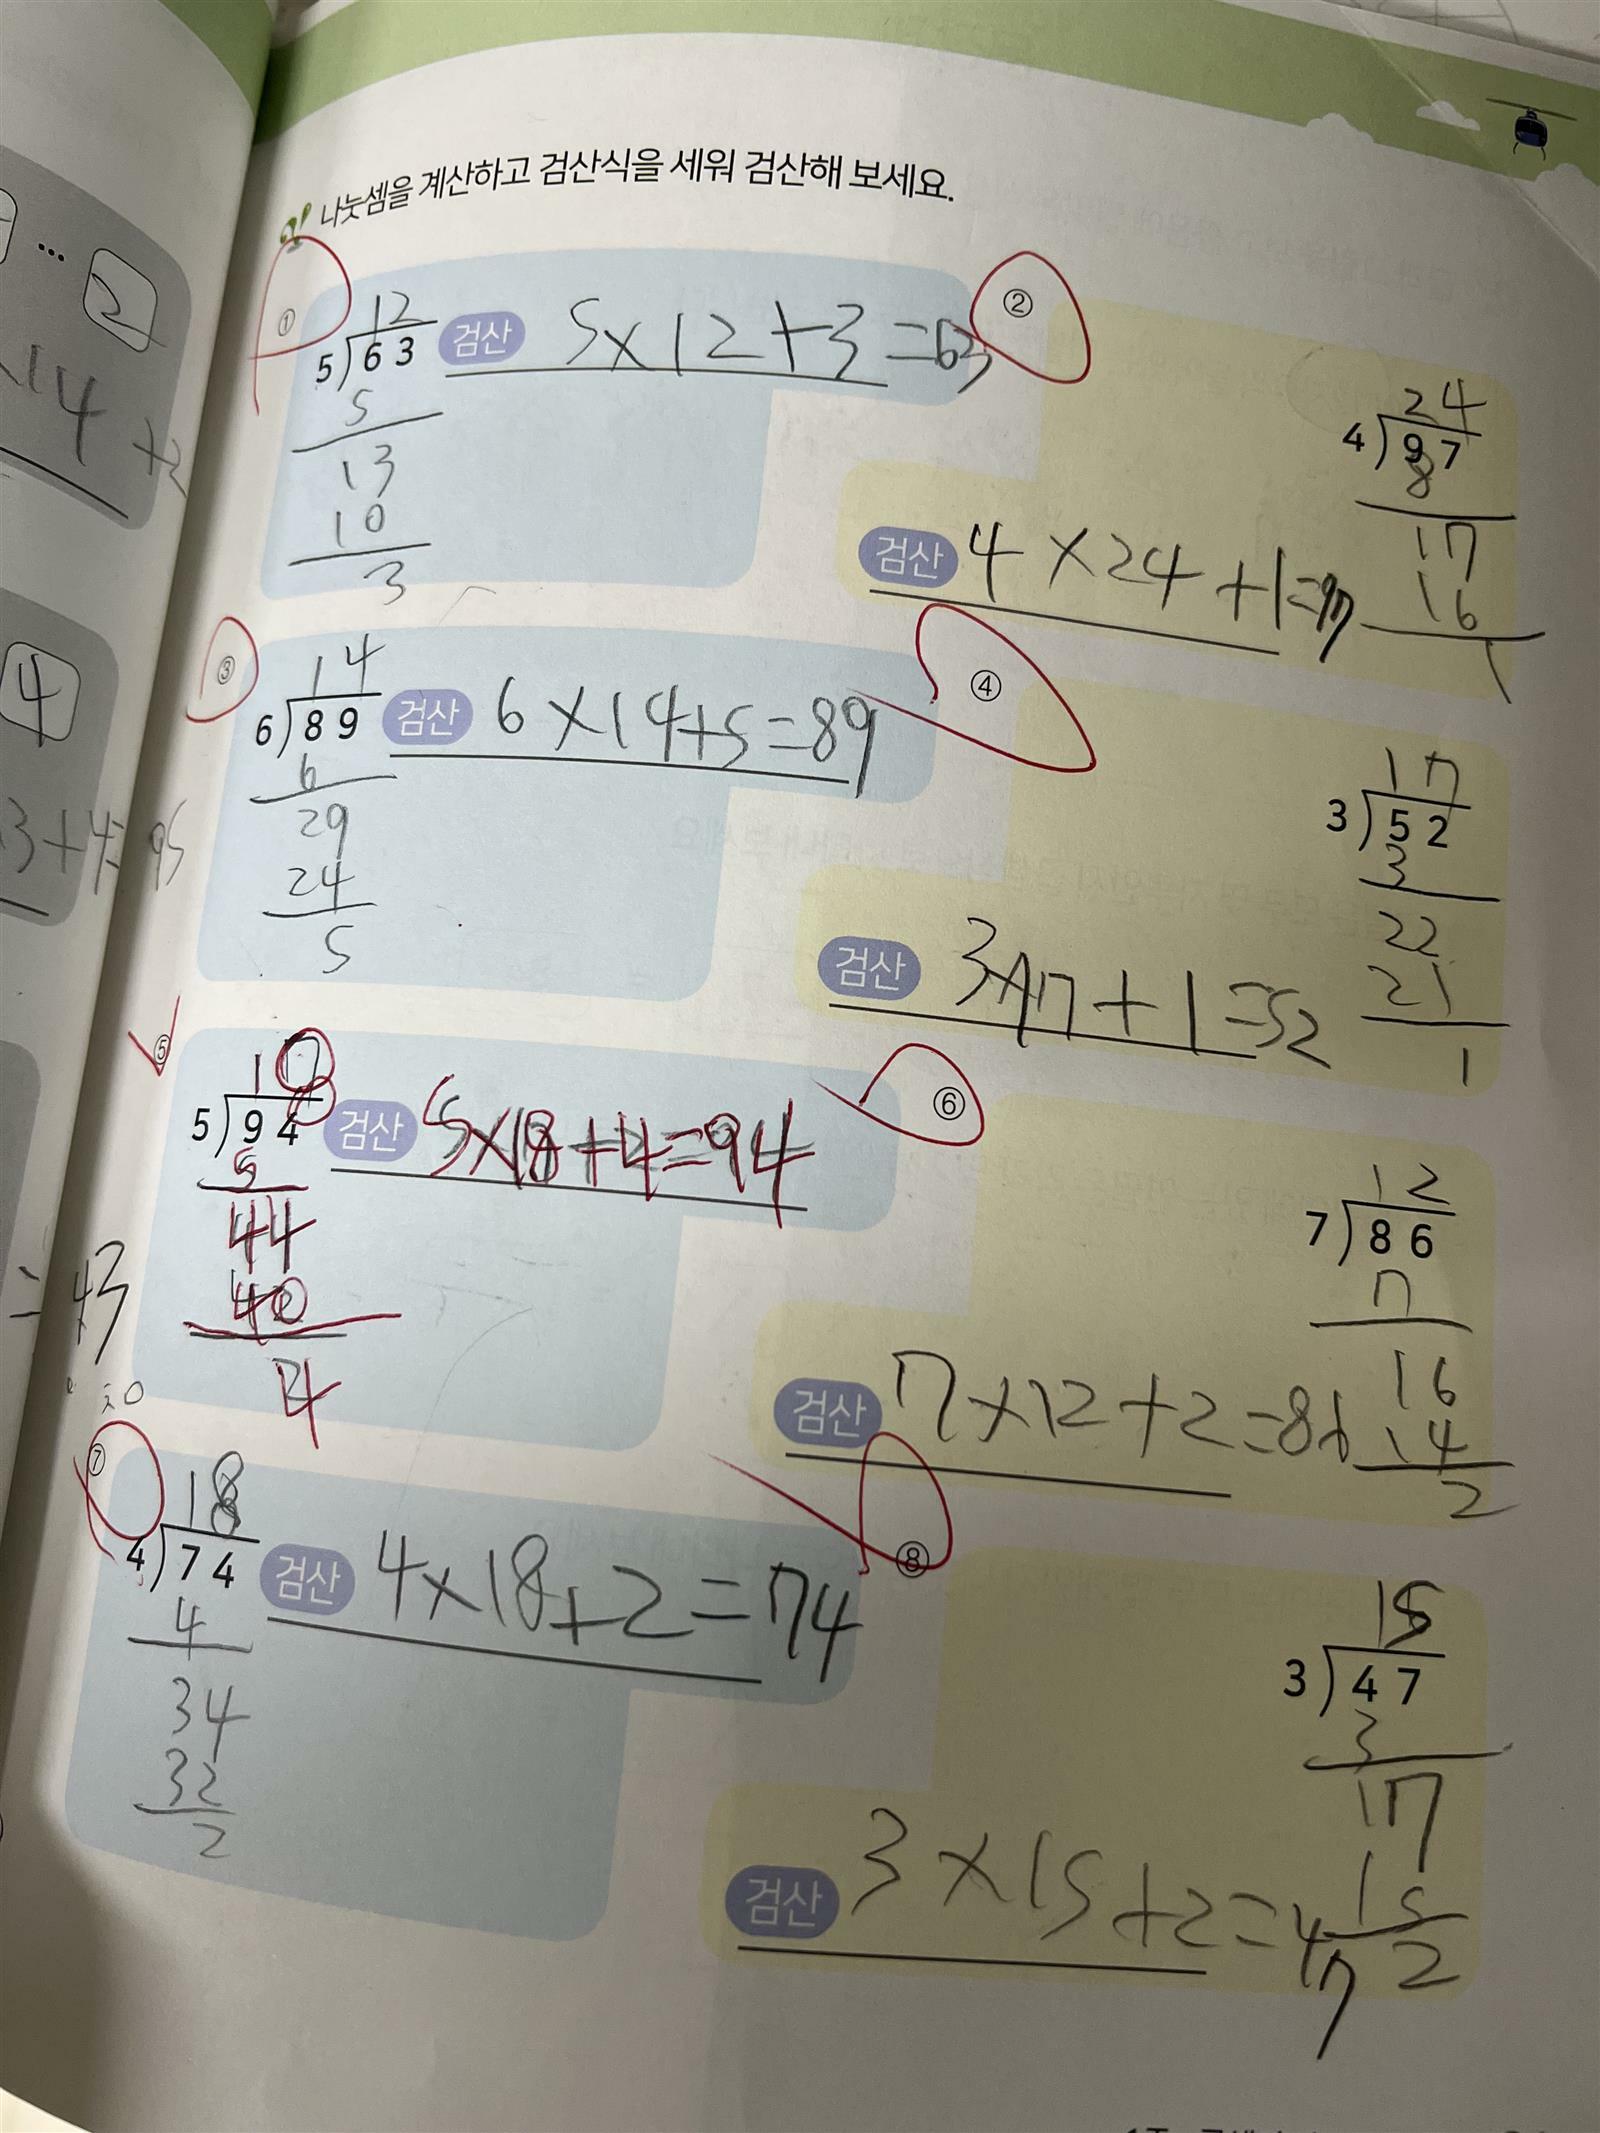 ... 2
14 +2
4
3+4=95
=43
나눗셈을 계산하고 검산식을 세워 검산해 보세요.
①
12
5)63
5
13
10
3
검산 5×12+3=63
②
24
4)97
8
17
16
1
검산 4×24+1=97
③
14
6)89
6
29
24
5
검산 6×14+5=89
④
17
3)52
3
22
21
1
검산 3×17+1=52
⑤
1
5)94
5
44
40
4
검산 5×18+4=94
⑥
12
7)86
7
16
14
2
검산 7×12+2=86
⑦
18
4)74
4
34
32
2
검산 4×18+2=74
⑧
15
3)47
3
17
15
2
검산 3×15+2=47